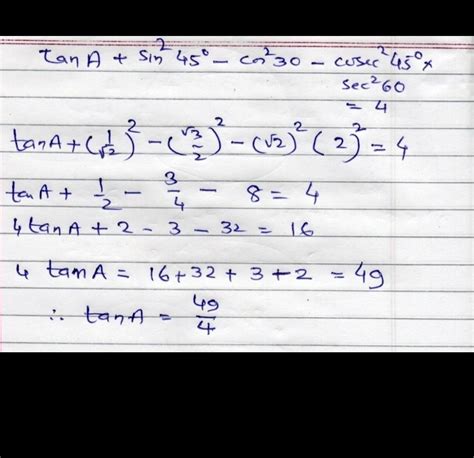 tanA + sin²45° - cos²30 - cosec²45° ×
sec²60
= 4
tanA + (1/√2)² - (√3/2)² - (√2)² (2)² = 4
tanA + 1/2 - 3/4 - 8 = 4
4tanA + 2 - 3 - 32 = 16
4 tanA = 16 + 32 + 3 + 2 = 49
∴ tanA = 49/4